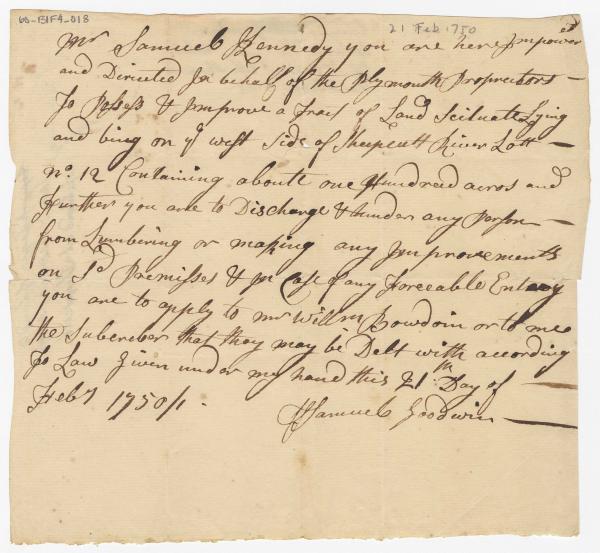 60-B1F4-018
21 Feb 1750
Mr Samuel Kennedy you are here Impowered
and Directed In behalf of the Plymouth Proprietors
To Posess & Improve a Tract of Land Scituate Lying
and bing on ye west Side of Sheepscutt River Lott
No. 12 Containing aboute one Hundred acros and
Further you are to Discharge & hinder any Person
from Lumbering or making any Improvements
on Sd Premisses & In Case of any Forceable Entrey
you are to apply to mr Willm Bowdoin or to me
the Subscriber that they may be Delt with according
To Law Given under my hand this 21th Day of
Feby 1750/1.
Samuel Goodwin